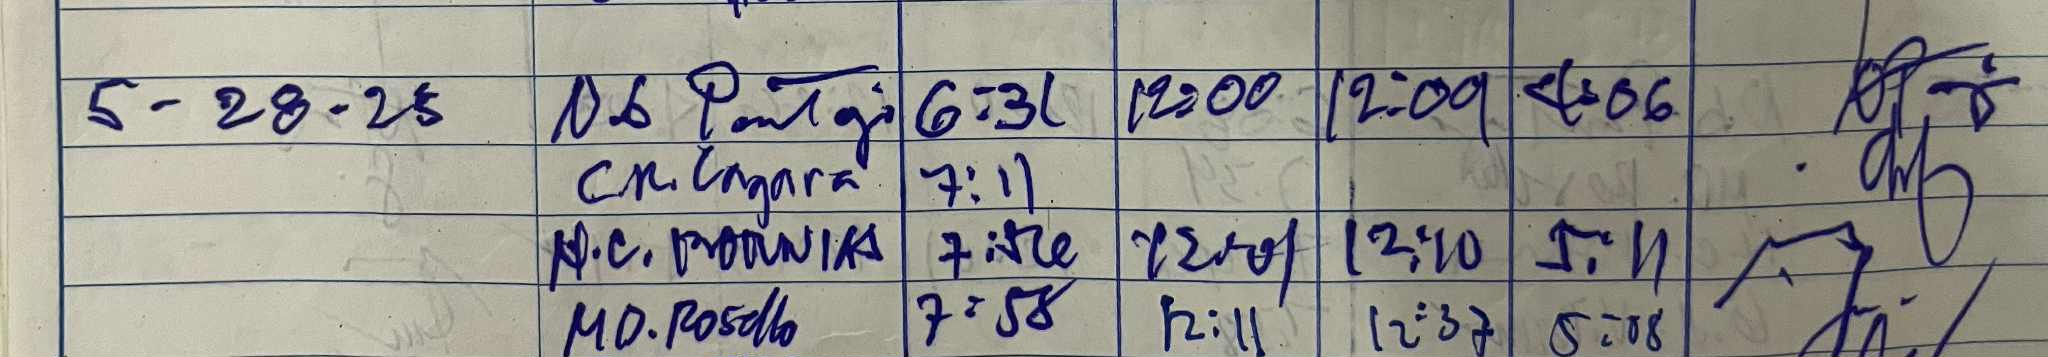 5-28-25 6:31 12:00 12:09 4:06
C.R. Cagara 7:11
7:56 12:01 12:10 5:11
M.D. Rosello 7:58 12:11 12:37 5:08